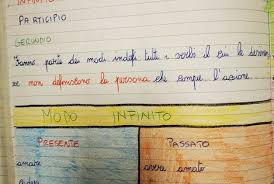 INFINITO
PARTICIPIO
GERUNDIO
Fanno parte dei modi indefiniti tutti i verbi il cui
non definiscono la persona che compie l'azione...
MODO INFINITO
PRESENTE PASSATO
amare avere amato